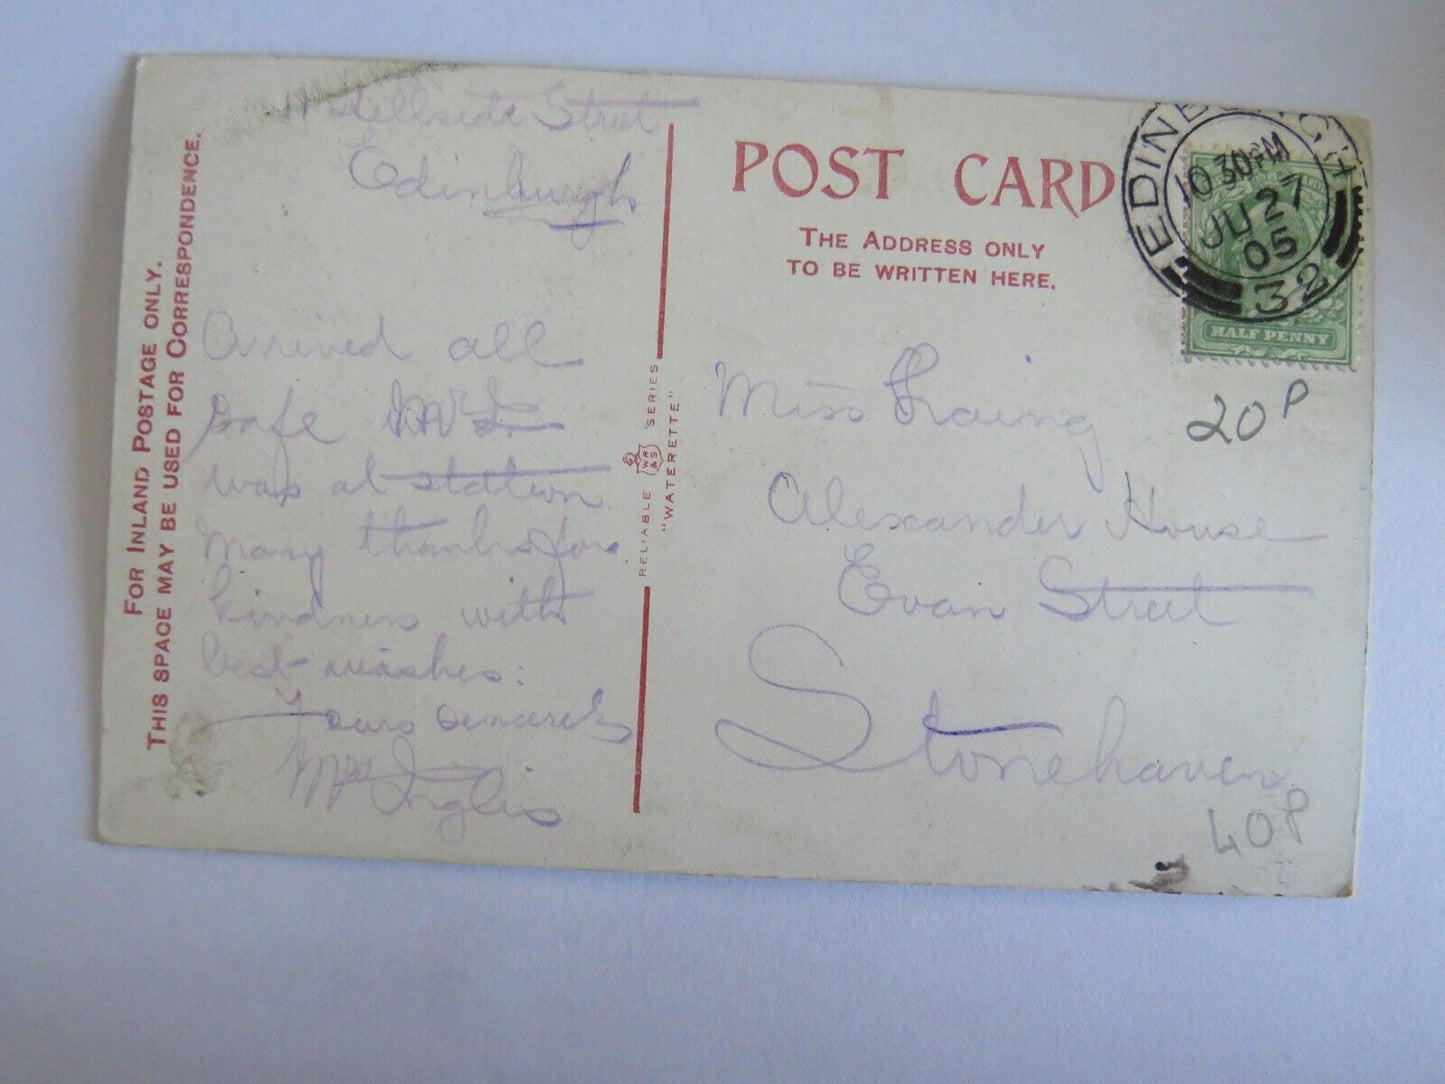 FOR INLAND POSTAGE ONLY.
THIS SPACE MAY BE USED FOR CORRESPONDENCE.
Hillside Street
Edinburgh
Arrived all
safe
was at station
Many thanks for
kindness with
best wishes.
Yours sincerely
Inglis
RELIABLE WR&S SERIES
"WATERETTE"
POST CARD
THE ADDRESS ONLY
TO BE WRITTEN HERE.
EDINBURGH
10 30 PM
JU 27
05
32
HALF PENNY
20P
Miss
Alexander House
Evan Street
Stonehaven
40P